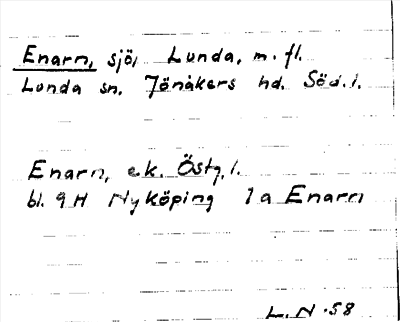 Enarn, sjö, Lunda, m. fl.
Lunda sn. Jönåkers hd. Söd. l.
Enarn, ek. Östg. l.
bl. 9 H Nyköping 1a Enarn
L. N. 58